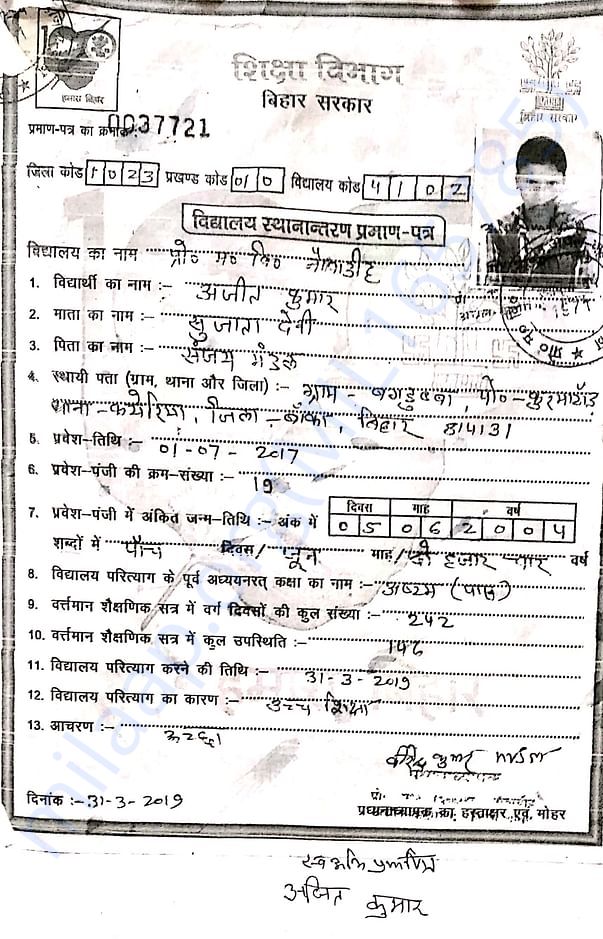 हमारा बिहार
शिक्षा विभाग
बिहार सरकार
बिहार सरकार
प्रमाण-पत्र का क्रमांक:- 0037721
जिला कोड 1023 प्रखण्ड कोड 010 विद्यालय कोड 4102
विद्यालय स्थानान्तरण प्रमाण-पत्र
विद्यालय का नाम प्रो० म० वि०
1. विद्यार्थी का नाम :- अजीत कुमार
2. माता का नाम :- सुजाता देवी
3. पिता का नाम :- संजय मंडल
4. स्थायी पता (ग्राम, थाना और जिला) :- ग्राम - पो०-
थाना - जिला - बाँका, बिहार 814131
5. प्रवेश-तिथि :- 01-07-2017
6. प्रवेश-पंजी की क्रम-संख्या :- 19
दिवस माह वर्ष
7. प्रवेश-पंजी में अंकित जन्म-तिथि :- अंक में 05 06 2004
शब्दों में पाँच दिवस/ जून माह/ दो हजार चार वर्ष
8. विद्यालय परित्याग के पूर्व अध्ययनरत् कक्षा का नाम :- अष्टम (पास)
9. वर्त्तमान शैक्षणिक सत्र में वर्ग दिवसों की कुल संख्या :- 242
10. वर्त्तमान शैक्षणिक सत्र में कुल उपस्थिति :-
11. विद्यालय परित्याग करने की तिथि :- 31-3-2019
12. विद्यालय परित्याग का कारण :- उच्च शिक्षा
13. आचरण :- अच्छा
कुमार मंडल
दिनांक :- 31-3-2019
प्रधानाध्यापक का हस्ताक्षर एवं मोहर
अजित कुमार